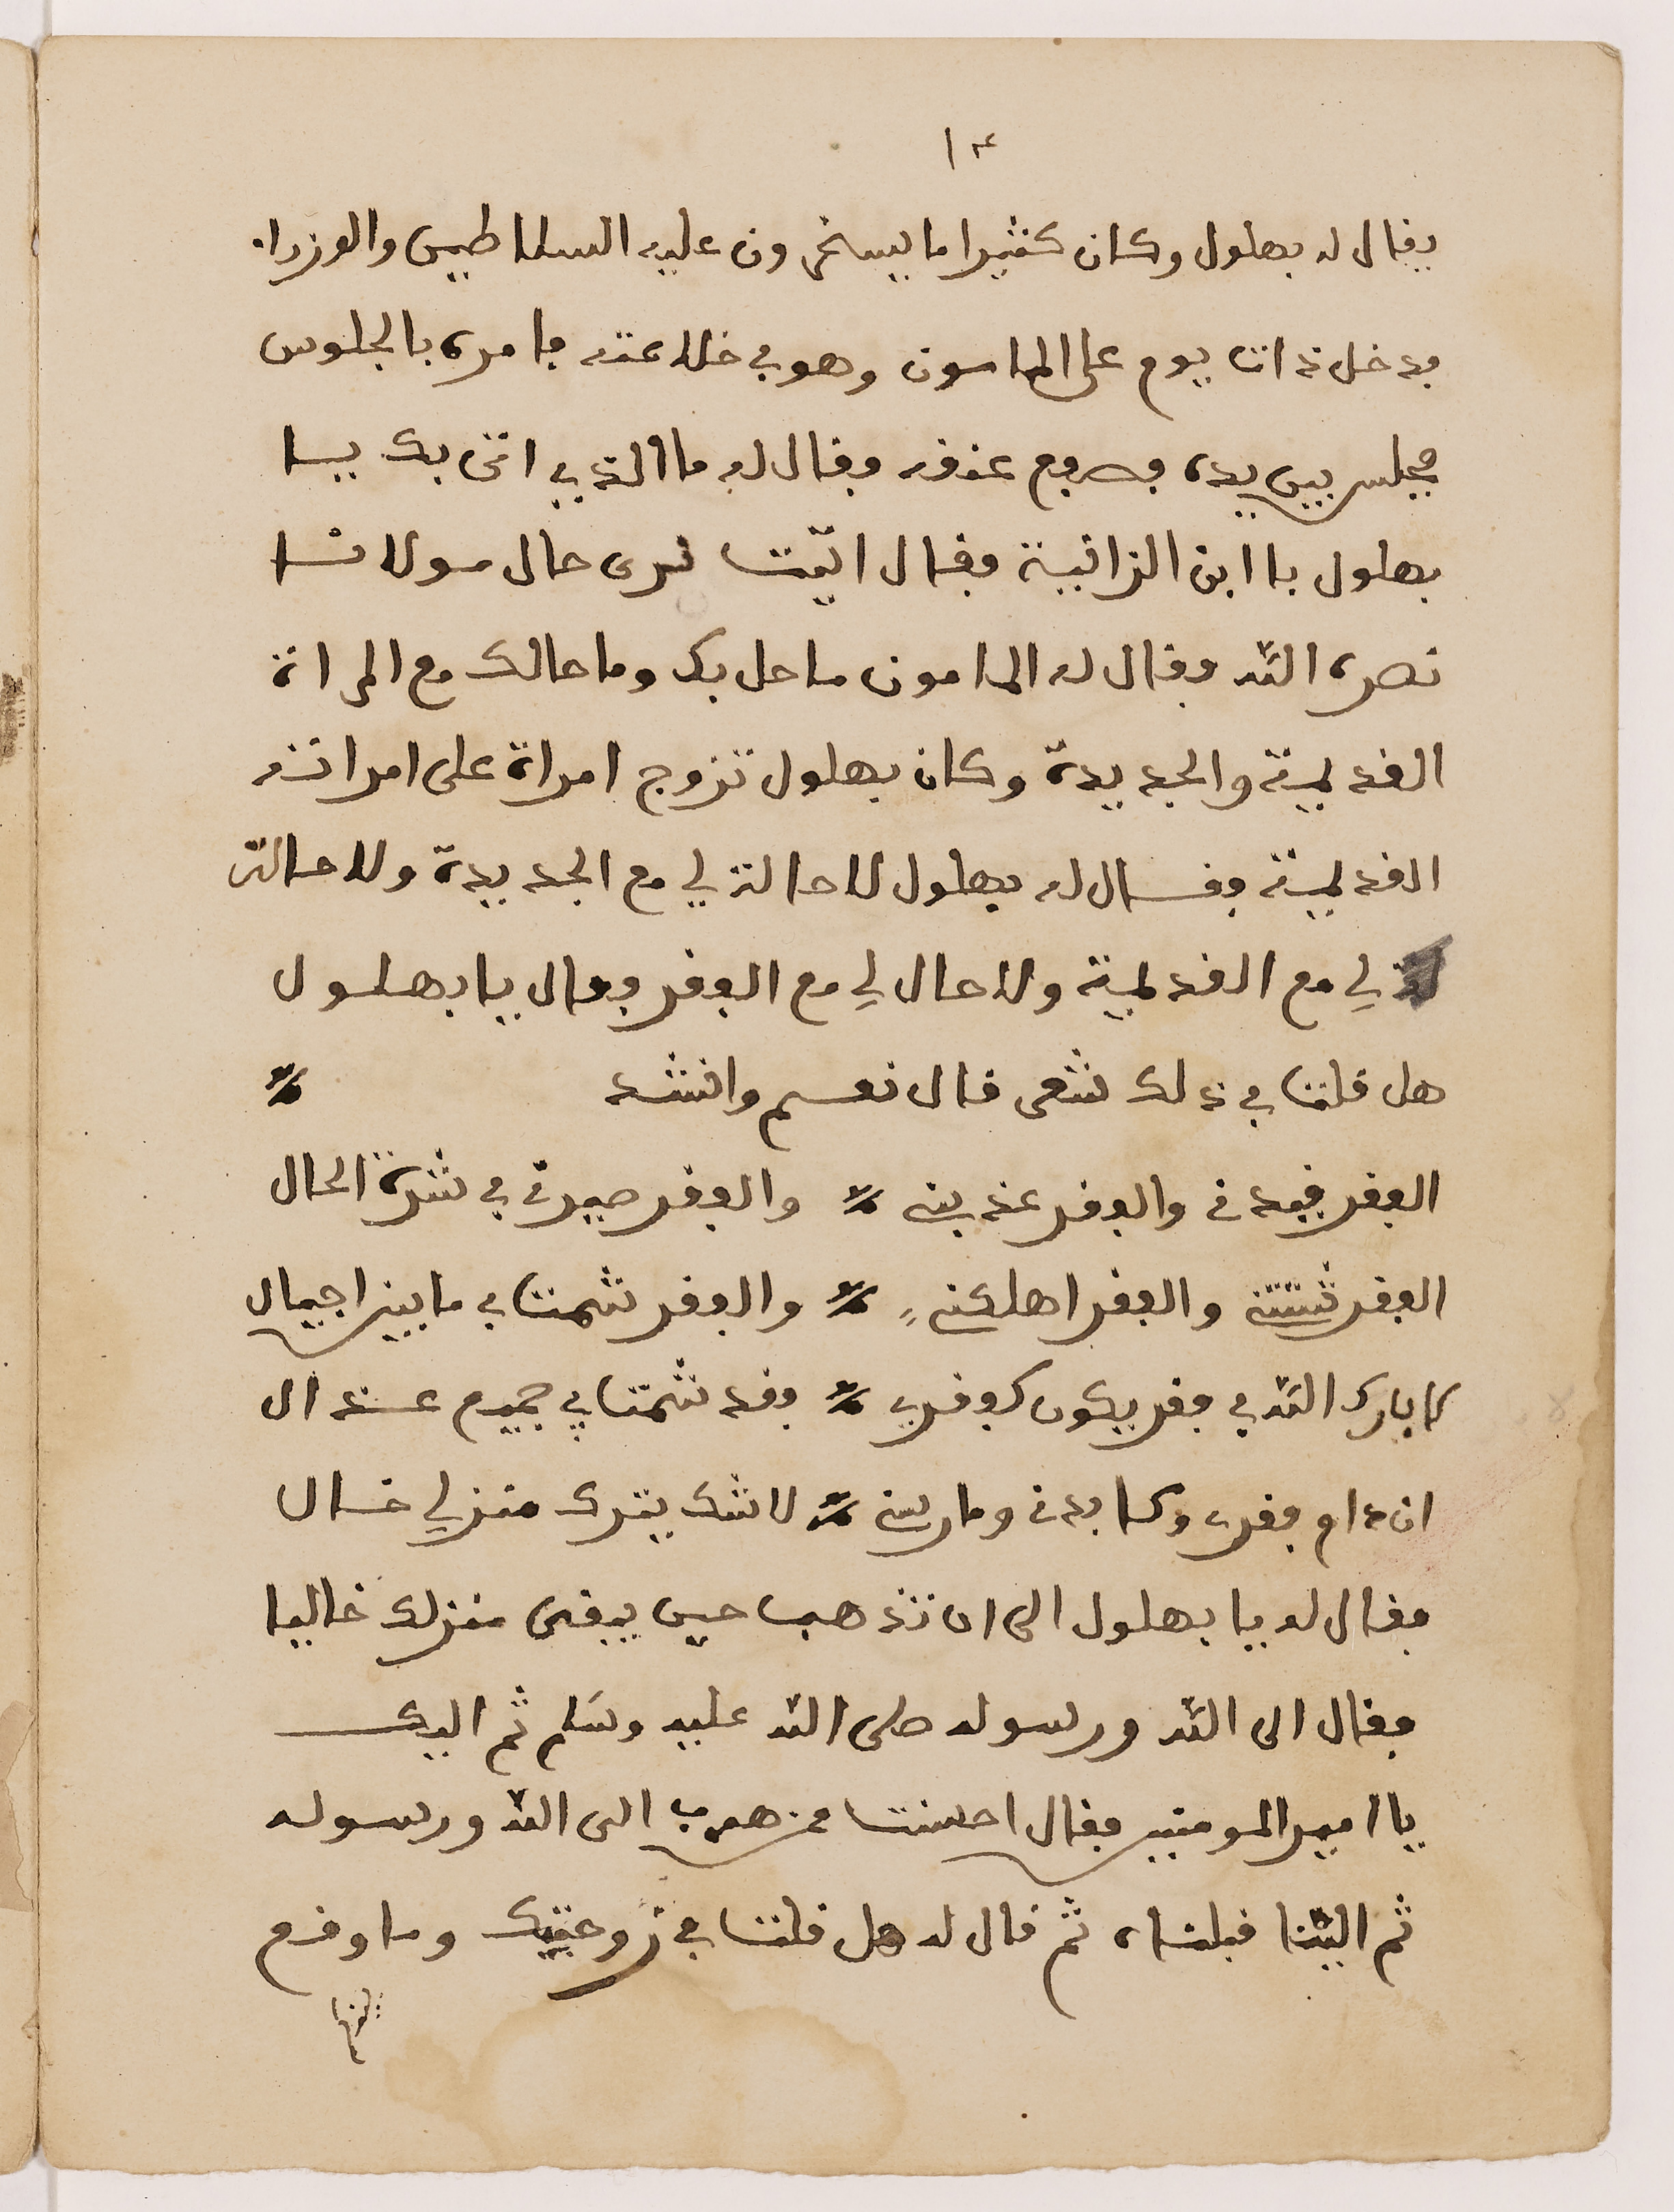 ١٤
يقال له بهلول وكان كثيرا ما يسخرون عليه السلاطين والوزراء
فدخل ذات يوم على المامون وهو في خلاعته فامره بالجلوس
فجلس بين يده فصفع عنقه وقال له ما الذي اتى بك يا
بهلول يا ابن الزانية فقال اتيت نرى حال مولانا
نصره الله فقال له المامون ما حل بك وما حالك مع المراة
القديمة والجديدة وكان بهلول تزوج امراة على امراته
القديمة فقال له بهلول لا حالة لي مع الجديدة ولا حالة
لي مع القديمة ولا حال لي مع الفقر فقال يا بهلول
هل قلت في ذلك شعر قال نعم وانشد
الفقر قيدني والفقر عذبني والفقر صيرني في شرة الحال
الفقر شتتني والفقر اهلكني والفقر شمت بي ما بين اجيال
لا بارك الله في فقر يكون كفقري فقد شمت بي جميع عذال
ان دام فقري وكابدني ومارسني لا شك يترك منزلي خال
فقال له يا بهلول الى ان تذهب حين يبقى منزلك خاليا
فقال الى الله ورسوله صلى الله عليه وسلم ثم اليك
يا امير المومنين فقال احسنت من هرب الى الله ورسوله
ثم الينا قبلناه ثم قال له هل قلت في زوجتيك وما وقع